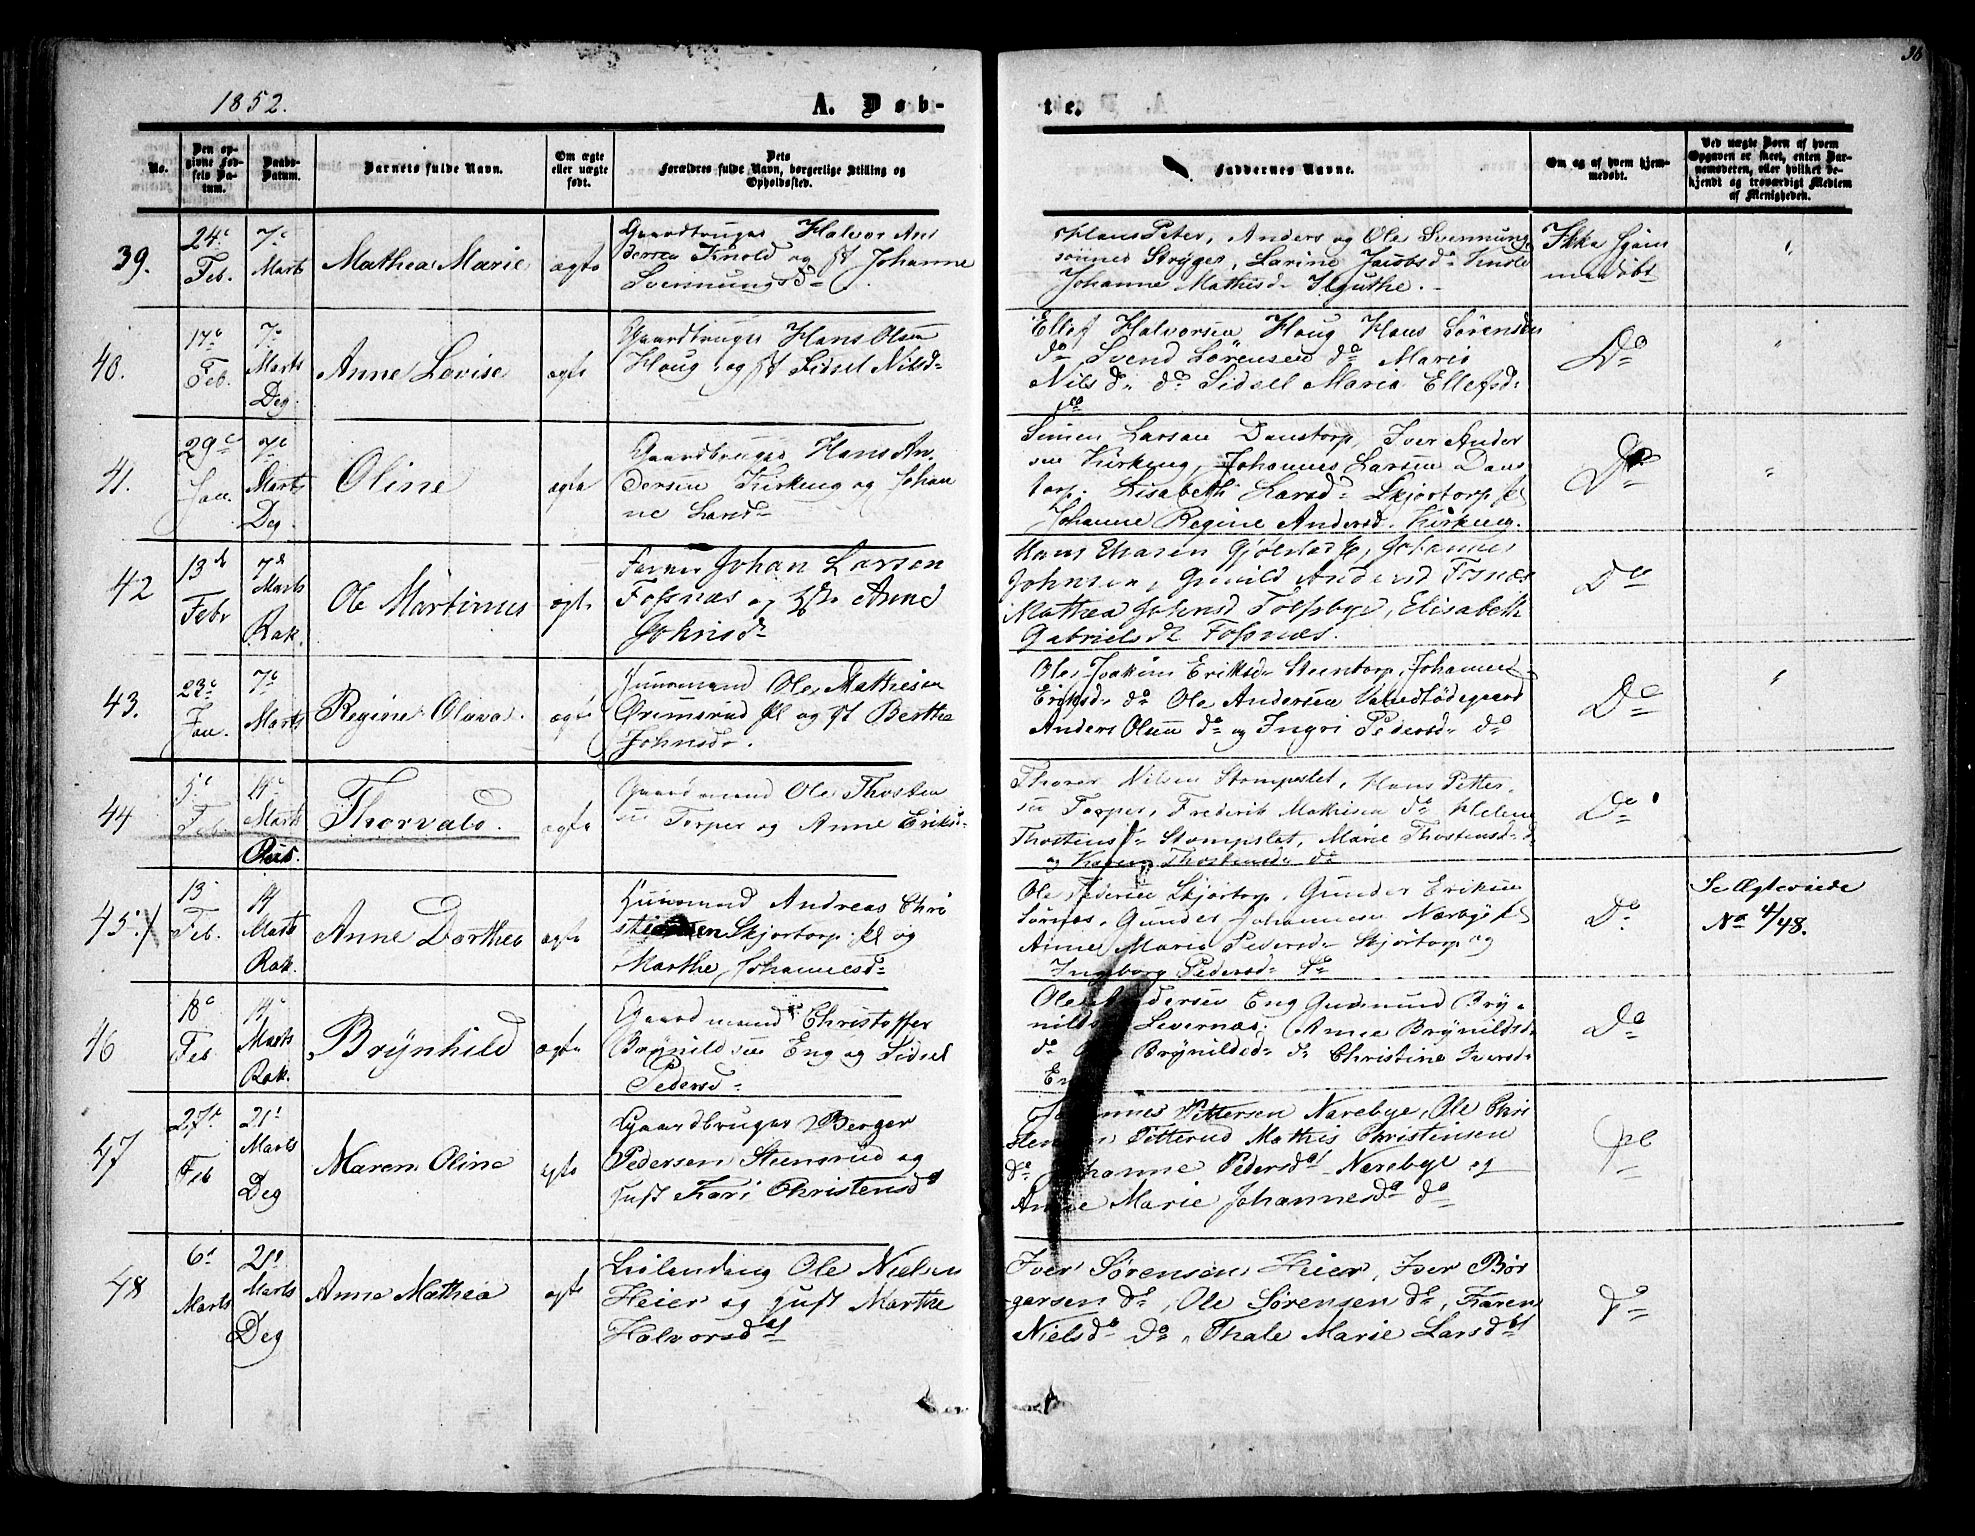 36
1852.
A. Døb-
te.
No.
Den op-
givne Fød-
sels Da-
tum.
Daabs-
Datum.
Barnets fulde Navn.
Om ægte
eller uægte
født.
Dets
Forældres fulde Navn, borgerlige Stilling og
Opholdssted.
Faddernes Navne.
Om og af hvem hjem-
medøbt.
Ved uægte Børn af hvem
Opgaven er skeet, enten Bar-
nemoderen, eller hvilket be-
kjendt og troværdigt Medlem
af Menigheden.
39.
24de
Feb.
7de
Marts
Mathea Marie
ægte
Gaardbruger Halvor An
dersen Knold og H Johanne
Svennungsd
Hans Peter, Anders og Ole Svennung
sønner Stryger, Larine Jacobsd Knold
Johanne Mathisd
Ikke hjem
medøbt
40.
Feb.
7de
Marts
Deg.
Anne Lovise
ægte
Gaardbruger Hans Olsen
Houg og H Sidsel Nilsd
Ellef Halvorsen Houg Hans Sørensen
do Svend Sørensen do Marie
Nils d do Sidsel Maria Ellefsd
do
Do
41.
29de
Jan.
7de
Marts
Deg.
Oline
ægte
Gaardbruger Hans An
dersen Kirkeng og Johan
ne Larsd
Simen Larsen Danstorp, Iver Ander
sen Kirkeng, Johannes Larsen Dans
torp. Lisabeth Larsd Skjortorp
Johanne Regine Andersd. Kirkeng.
Do
42
13de
Febr
7de
Marts
Rak.
Ole Martinus
ægte
Johan Larsen
Fossnæs og Anne
Johnsd
Hans Johannes
Johnsen, Gunild Andersd Fosnæs
Mathea Johnsd Tolfsbye, Elisabeth
Gabrielsd Fossnæs.
Do
43.
23de
Jan.
7de
Marts
Regine Olava.
ægte
Huusmand Ole Mathisen
Grimsrud og H Berthe
Johnsd.
Ole, Joakim Eriksd Steentorp, Johannes
Eriksd do Ole Andersen
Anders Olsen do og Ingri Pedersd do
Do
44
5te
Feb.
14de
Marts
Thorvald.
ægte
Gaardmand Ole Thosten
sen Torper og Anne Eriksd
Thorer Nilsen Stompslet, Hans Petter-
sen Torper, Frederik Mathisen do Helene
Thostensd Stompslet, Marie Thostensd
og Karen Thostensd do
Do
45.
13
Feb.
14
Marts
Rak.
Anne Dorthea
ægte
Huusmand Andreas Chri
stiansen Skjortorp og
Marthe Johannesd
Ole Pedersen Skjortorp, Gunder Eriksen
Sørnæs, Gunder Johannesen Nærbye
Anne Marie Pedersd Skjortorp og
Ingeborg Pedersd do
Do
Se Ægteviede
No 4/48.
46
18de
Feb
14de
Marts
Rak.
Brynhild
ægte
Gaardmand Christoffer
Brynildsen Eng og Sidsel
Pedersd
Ole Andersen Eng Gudmund Bry-
nilds Levernæs; Anne Brynildsd
do Brynildsd do Christine Iversd
Do
47
27de
Feb
21de
Marts
Deg
Maren Oline
ægte
Gaardbruger Berger
Pedersen Steensrud og
Kari Christensd
Johannes Pettersen Narebye, Ole Chri
stensen Pitterud Mathis Christensen
do Johanne Pedersd Narebye og
Anne Marie Johannesd do
Do
48
6te
Marts
21de
Marts
Deg
Anne Mathea
ægte
Leilænding Ole Nielsen
Heier og Marthe
Halvorsd
Iver Sørensen Heier, Iver Bør
gersen do, Ole Sørensen do, Karen
Nielsd do, Thale Marie Larsd
Do